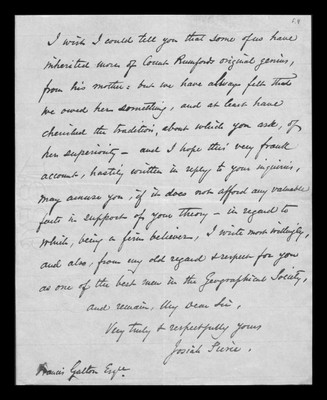 I wish I could tell you that some of us have
inherited more of Count Rumford's original genius,
from his mother: but we have always felt that
we owed her something, and at least have
cherished the tradition, about which you ask, of
her superiority — and I hope this very frank
account, hastily written in reply to your inquiries,
may amuse you, if it does not afford any valuable
facts in support of your theory — in regard to
which, being a firm believer, I write most willingly,
and also, from my old regard & respect for you
as one of the best men in the Geographical Society,
and remain, My Dear Sir,
Very truly & respectfully yours
Josiah Pierce.
Francis Galton Esqre